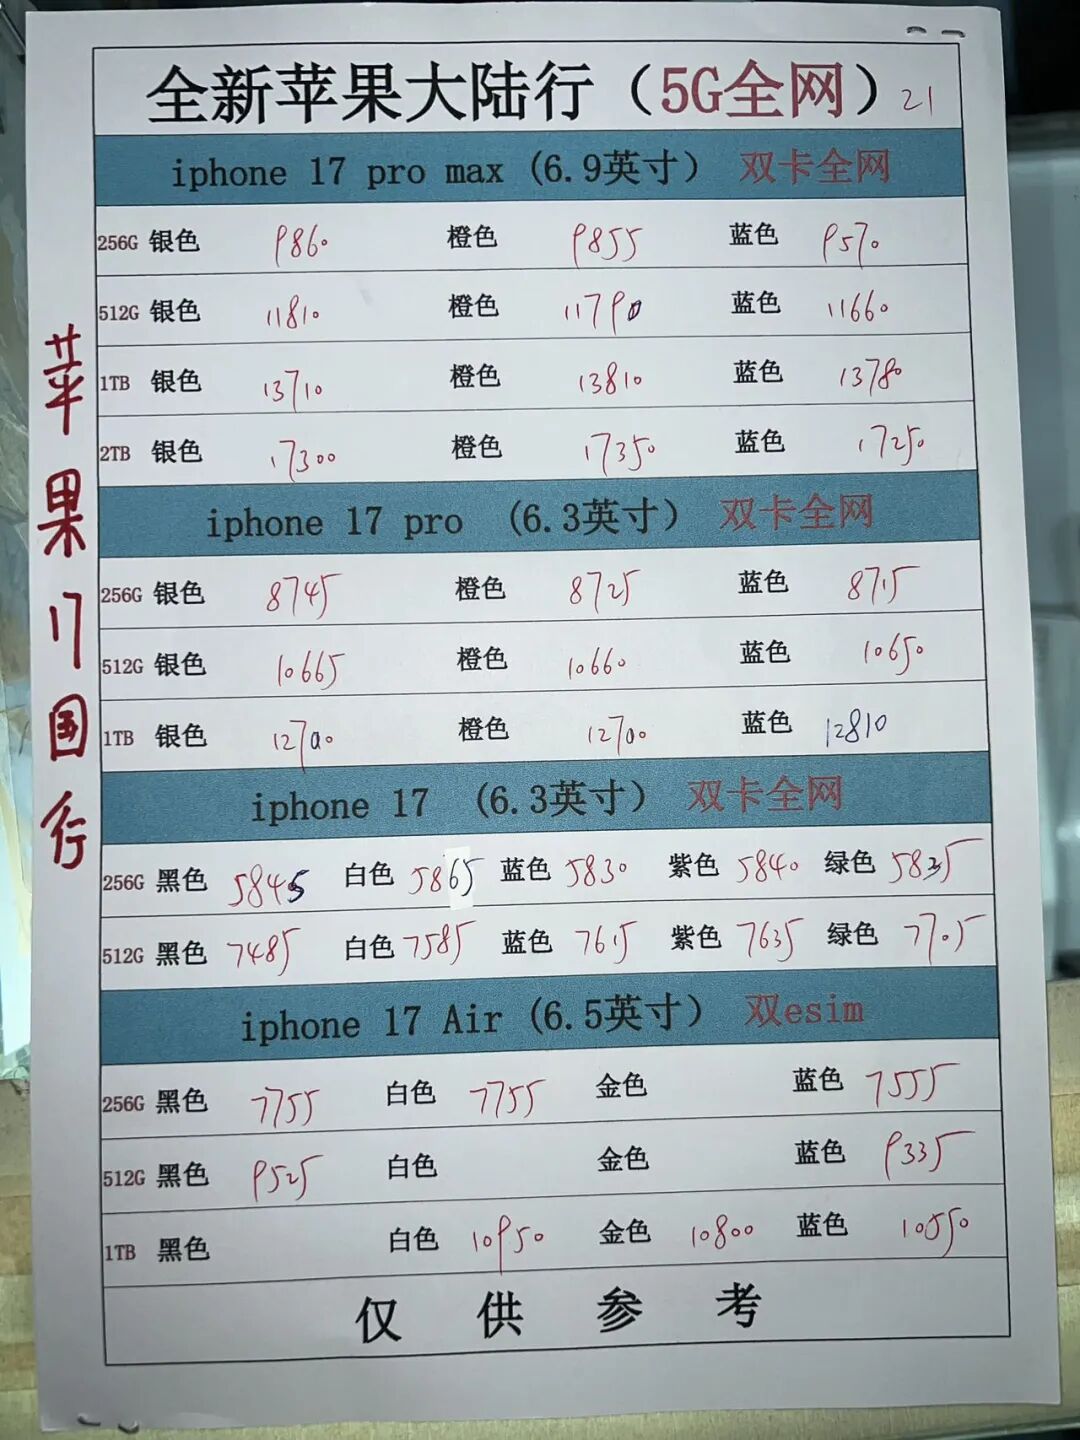 全新苹果大陆行（5G全网）21
iphone 17 pro max (6.9英寸） 双卡全网
256G 银色 9860 橙色 9855 蓝色 9570
512G 银色 11810 橙色 11790 蓝色 11660
1TB 银色 13710 橙色 13810 蓝色 13780
2TB 银色 17300 橙色 17350 蓝色 17250
iphone 17 pro (6.3英寸） 双卡全网
256G 银色 8745 橙色 8725 蓝色 8715
512G 银色 10665 橙色 10660 蓝色 10650
1TB 银色 12700 橙色 12700 蓝色 12810
iphone 17 (6.3英寸） 双卡全网
256G 黑色 5845 白色 5865 蓝色 5830 紫色 5840 绿色 5835
512G 黑色 7485 白色 7585 蓝色 7615 紫色 7635 绿色 7705
iphone 17 Air (6.5英寸） 双esim
256G 黑色 7755 白色 7755 金色 蓝色 7555
512G 黑色 9525 白色 金色 蓝色 9335
1TB 黑色 白色 10950 金色 10800 蓝色 10550
仅供参考
苹果17国行